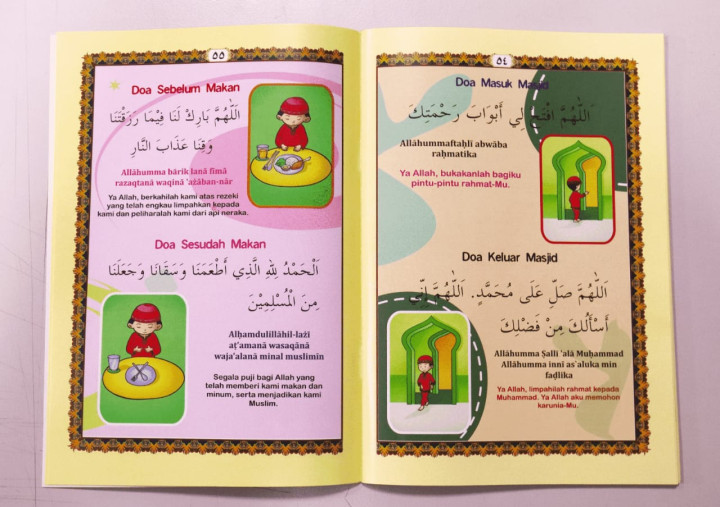 ٥٥
Doa Sebelum Makan
اَللّٰهُمَّ بَارِكْ لَنَا فِيْمَا رَزَقْتَنَا
وَقِنَا عَذَابَ النَّارِ
Allāhumma bārik lanā fīmā
razaqtanā waqinā 'ażāban-nār
Ya Allah, berkahilah kami atas rezeki
yang telah engkau limpahkan kepada
kami dan peliharalah kami dari api neraka.
Doa Sesudah Makan
اَلْحَمْدُ لِلّٰهِ الَّذِي أَطْعَمَنَا وَسَقَانَا وَجَعَلَنَا
مِنَ الْمُسْلِمِيْنَ
Alḥamdulillāhil-lażī
aṭ'amanā wasaqānā
waja'alanā minal muslimīn
Segala puji bagi Allah yang
telah memberi kami makan dan
minum, serta menjadikan kami
Muslim.
٥٤
Doa Masuk Masjid
اَللّٰهُمَّ افْتَحْ لِي أَبْوَابَ رَحْمَتِكَ
Allāhummaftaḥlī abwāba
raḥmatika
Ya Allah, bukakanlah bagiku
pintu-pintu rahmat-Mu.
Doa Keluar Masjid
اَللّٰهُمَّ صَلِّ عَلَى مُحَمَّدٍ. اَللّٰهُمَّ إِنِّي
أَسْأَلُكَ مِنْ فَضْلِكَ
Allāhumma Ṣalli 'alā Muḥammad
Allāhumma innī as'aluka min
faḍlika
Ya Allah, limpahilah rahmat kepada
Muhammad. Ya Allah aku memohon
karunia-Mu.